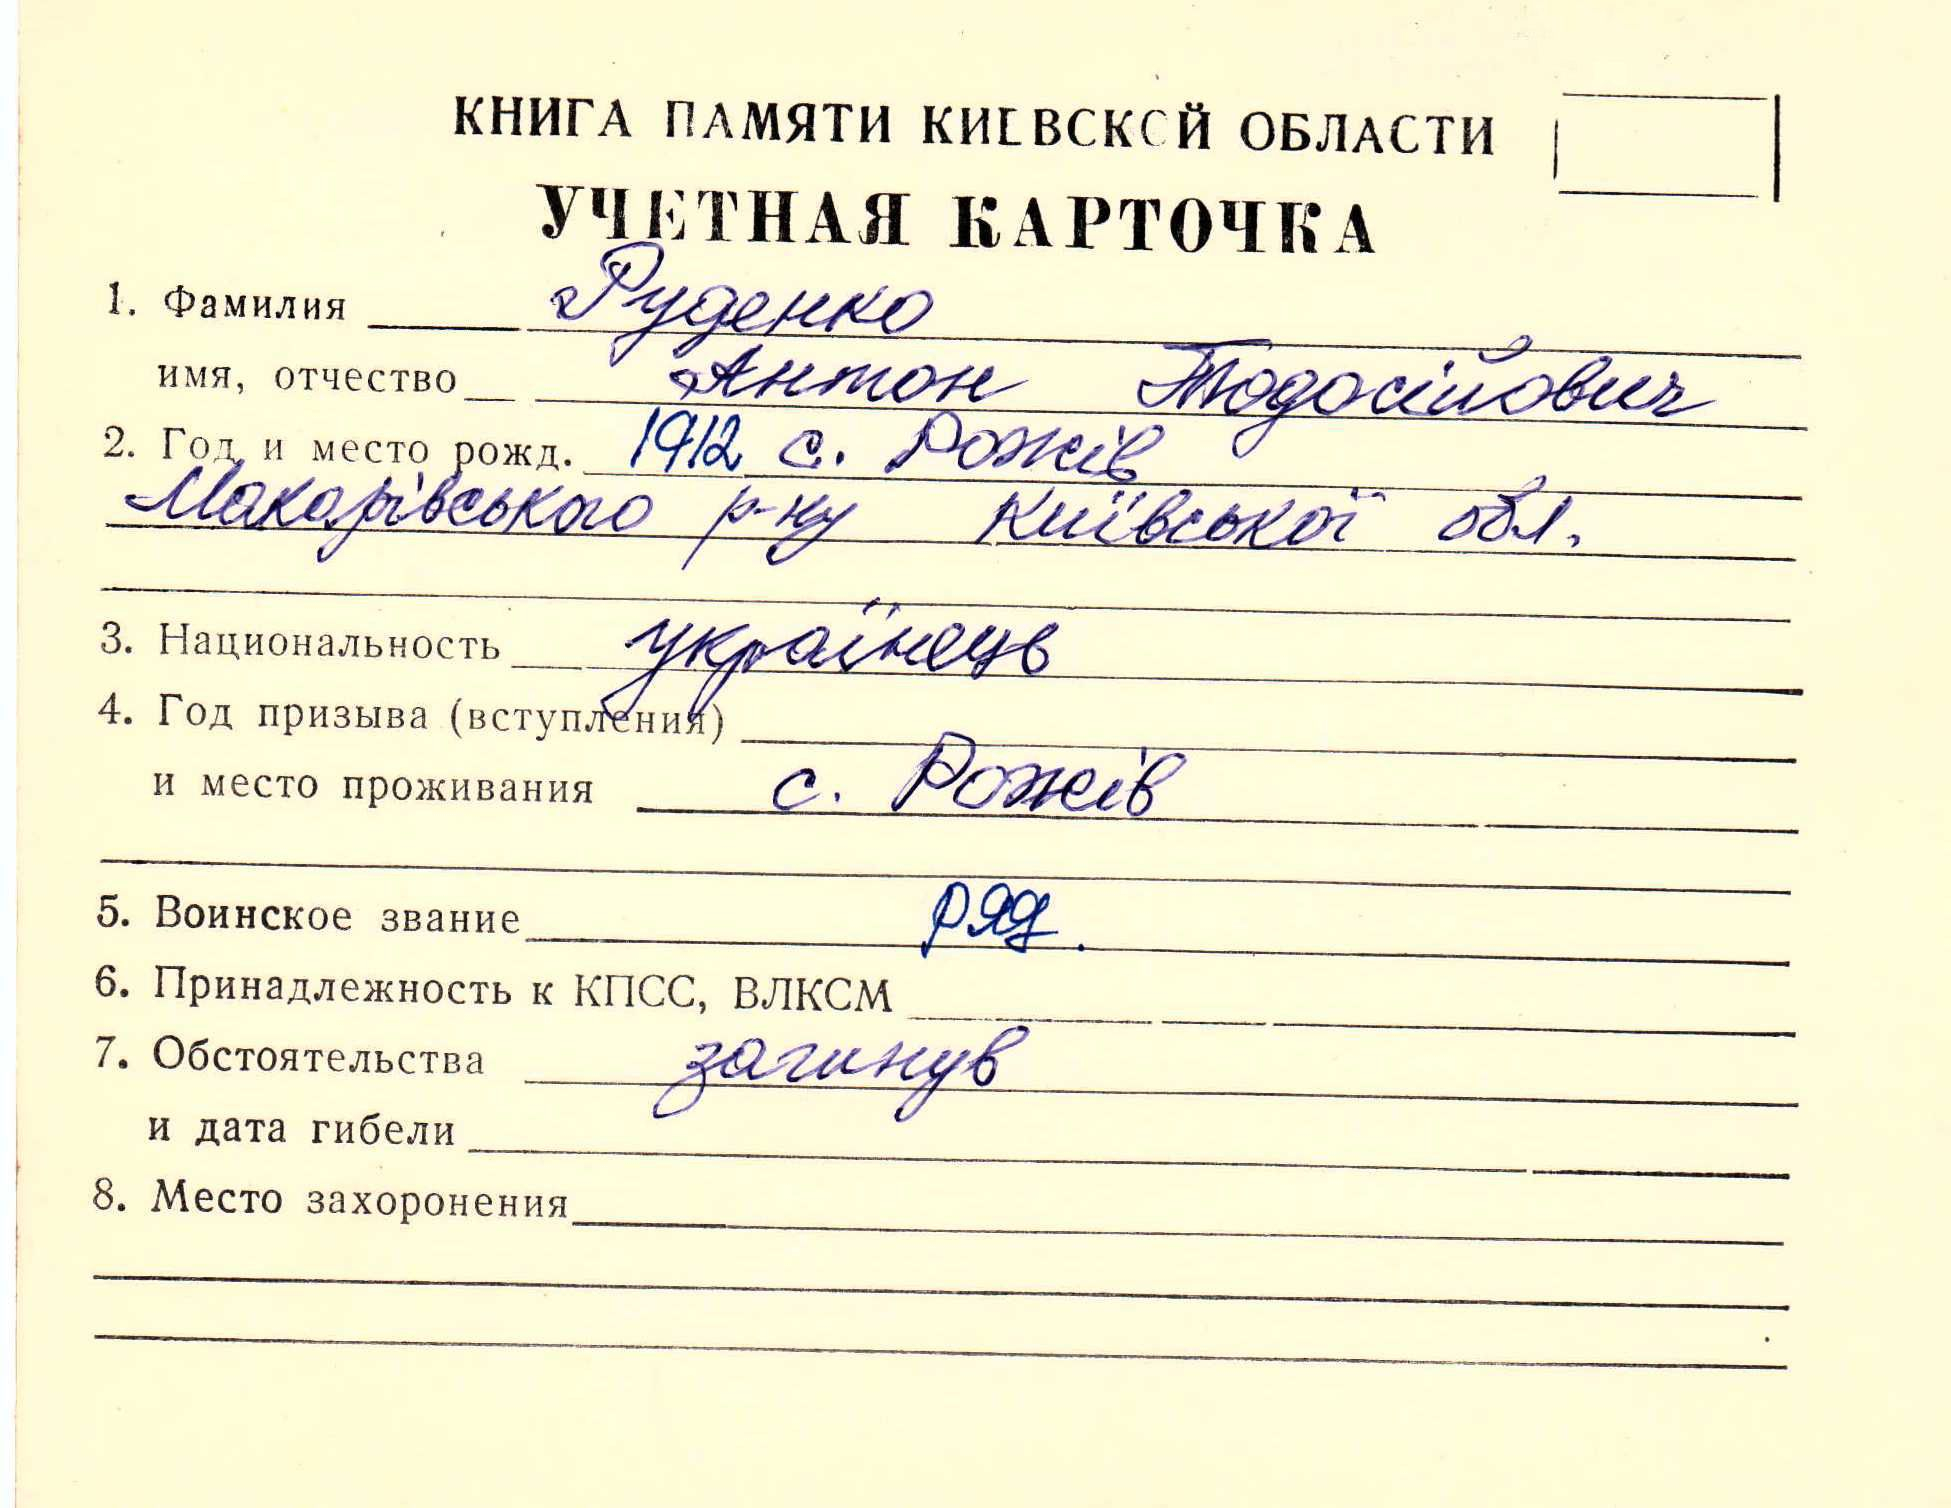 КНИГА ПАМЯТИ КИЕВСКОЙ ОБЛАСТИ
УЧЕТНАЯ КАРТОЧКА
1. Фамилия Руденко
имя, отчество Антон Тодосійович
2. Год и место рожд. 1912 с. Рожів
Макарівського р-ну Київської обл.
3. Национальность українець
4. Год призыва (вступления)
и место проживания с. Рожів
5. Воинское звание ряд.
6. Принадлежность к КПСС, ВЛКСМ
7. Обстоятельства загинув
и дата гибели
8. Место захоронения